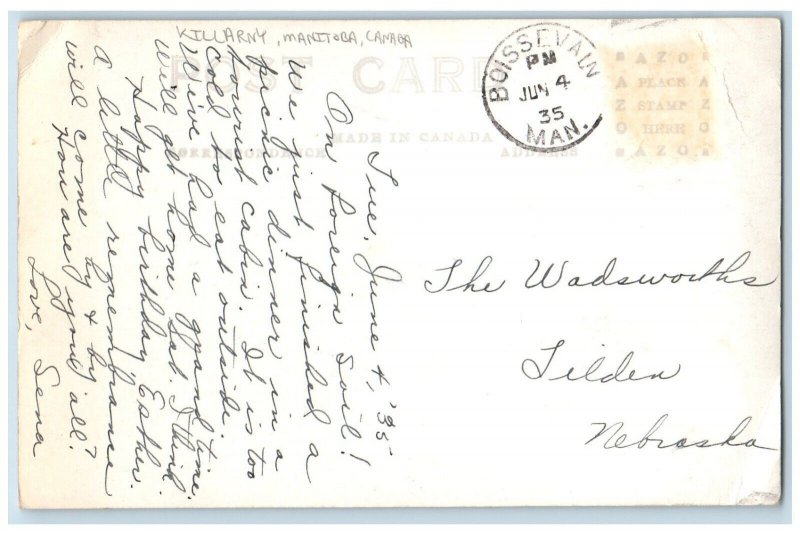 KILLARNY, MANITOBA, CANADA
POST CARD
MADE IN CANADA
CORRESPONDENCE
ADDRESS
BOISSEVAIN
PM
JUN 4
35
MAN.
AZO
A PLACE A
Z STAMP Z
O HERE O
AZO
Tue. June 4, '35
On foreign soil!
We just finished a
picnic dinner in a
tourist cabin. It is too
cold to eat outside.
We've had a grand time.
Will get home Sat. I think.
Happy birthday Esther.
a little remembrance
will come by & by.
How are you all?
Love, Sena
The Wadsworths
Tilden
Nebraska